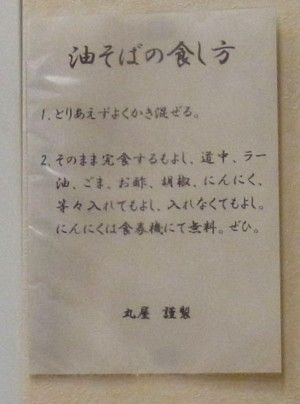 油そばの食し方
1.とりあえずよくかき混ぜる。
2.そのまま完食するもよし、道中、ラー
油、ごま、お酢、胡椒、にんにく、
等々入れてもよし、入れなくてもよし。
にんにくは食券機にて無料。ぜひ。
丸屋 謹製